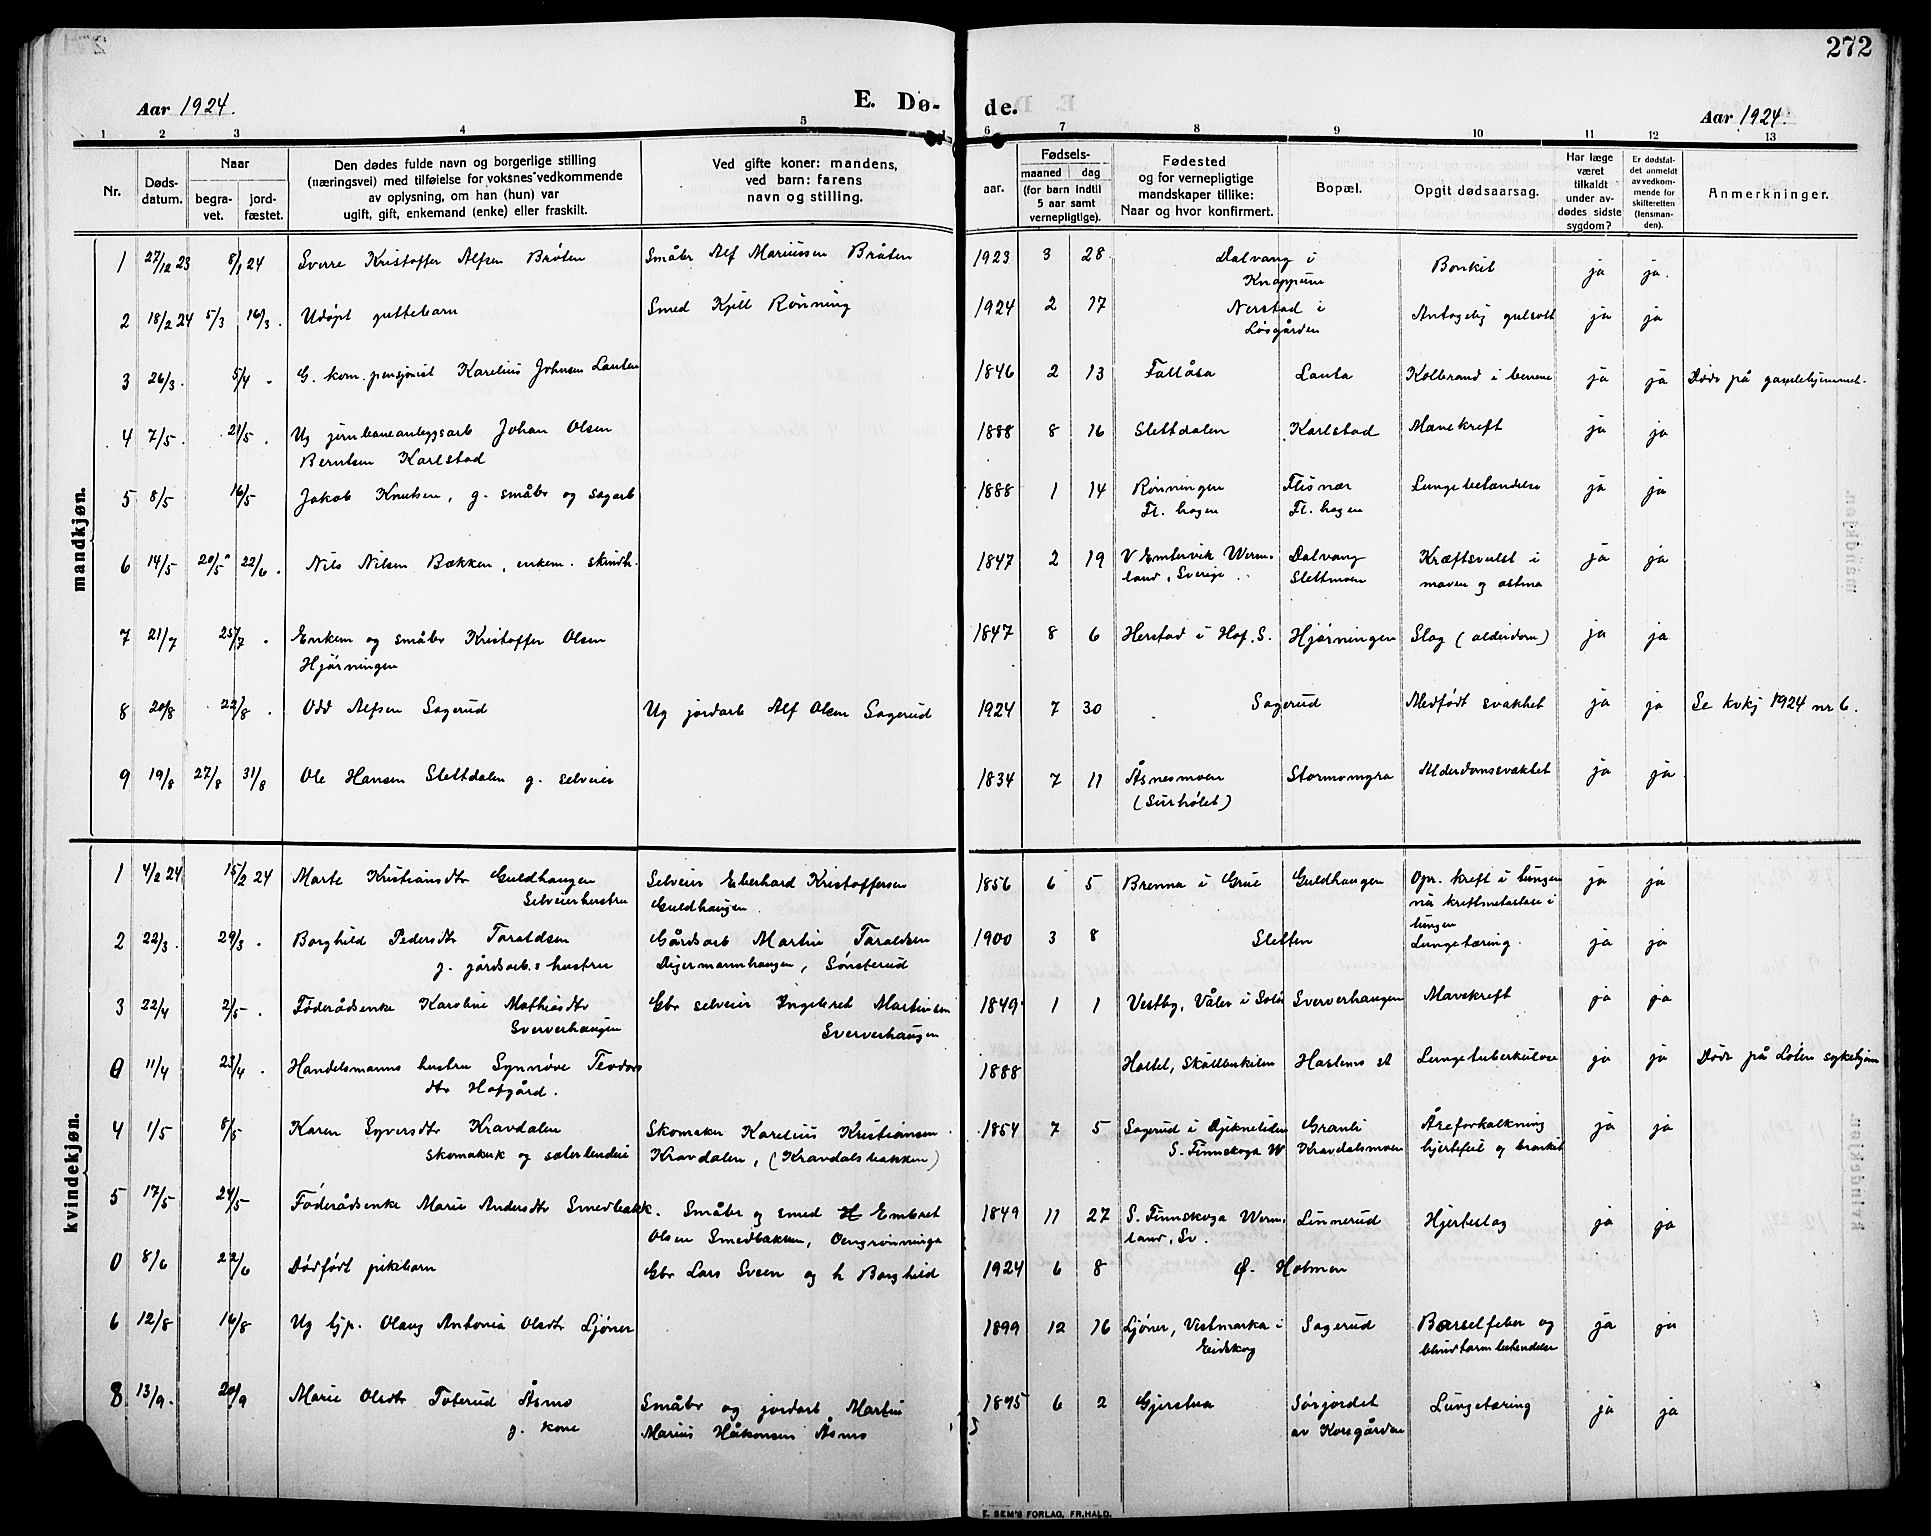 272
Aar 1924.
E. Dø-
de.
Aar 1924.
1 2 3 4 5 6 7 8 9 10 11 12 13
Nr.
Døds-
datum.
Naar
begra-
vet.
jord-
fæstet.
Den dødes fulde navn og borgerlige stilling
(næringsvei) med tilføielse for voksnes vedkommende
av oplysning, om han (hun) var
ugift, gift, enkemand (enke) eller fraskilt.
Ved gifte koner: mandens,
ved barn: farens
navn og stilling.
Fødsels-
aar.
maaned
dag
(for barn indtil
5 aar samt
vernepligtige).
Fødested
og for vernepligtige
mandskaper tillike:
Naar og hvor konfirmert.
Bopæl.
Opgit dødsaarsag.
Har læge
været
tilkaldt
under av-
dødes sidste
sygdom?
Er dødsfal-
det anmeldt
av vedkom-
mende for
skifteretten
(lensman-
den).
Anmerkninger.
mandkjøn.
1 27/12 23 8/1 24 Sverre Kristoffer Alfsen Bråten Småbr Alf Mariussen Bråten 1923 3 28 Dalvang i Bonkit ja ja.
Knappum
2 18/2 24 5/3 16/3. Udøpt guttebarn Smed Kjell Rønning 1924 2 17 Nerstad i Antagelig gulsott ja ja
Løsgården
3 26/3. 5/4 G. kom. pensjonist Karelius Johnsen Lauten 1846 2 13 Fallåsa Lauta Kolbrand i benene ja ja Døde på gamlehjemmet.
4 7/5. 21/5. Ug jernbaneanleggsarb Johan Olsen 1888 8 16 Slettdalen Karlstad Mavekreft ja ja
Berntsen Karlstad
5 8/5 16/5 Jakob Knutsen, g. småbr og sagarb 1888 1 14 Rønningen Flisnær Lungebetændelse ja ja
Fl. hagen Fl. hagen
6 14/5 20/5 22/6. Nils Nilsen Bækken, enkem. skindh. 1847 2 19 V Emtervik Werm- Dalvang Kræftsvulst i ja ja
land, Sverige Slettmoen maven og astma
7 21/7 25/7 Enkem og småbr Kristoffer Olsen 1847 8 6 Herstad i Hof. S. Hjørningen Slag (alderdom) ja ja
Hjørningen
8 20/8 22/8. Odd Alfsen Sagerud Ug jordarb Alf Olsen Sagerud 1924 7 30 Sagerud Medfødt svakhet ja ja Se kvkj 1924 nr 6.
9 19/8 27/8 31/8 Ole Hansen Slettdalen g. selveier 1834 7 11 Åsnesmoen Stormomyra Alderdomssvakhet ja ja
(Surhølet)
kvindekjøn.
1 4/2 24 15/2 24 Marte Kristiansdtr Guldhaugen Selveier Eberhard Kristoffersen 1856 6 5 Brenna i Grue Guldhaugen Opr. kreft i tungen ja ja
Selveierhustru Guldhaugen. nu kreftmetastase i
lungen
2 22/3. 29/3. Borghild Pedersdtr Taraldsen Gårdsarb Martin Taraldsen 1900 3 8 Sletten Lungetæring. ja ja
g. gårdsarb.s hustru Digermannhaugen, Sønsterud
3 22/4 2/5. Føderådsenke Karoline Mathiasdtr Gbr selveier Ingebret Martinsen 1849 1 1 Vestby, Våler i Solør Sververhaugen Mavekreft ja ja
Sververhaugen Sververhaugen
0 11/4 23/4. Handelsmanns hustru Synnøve Teodors 1888 Holtet, Skålbukilen Haslems st Lungetuberkulose ja ja Døde på Løten sykehjem
dtr Hofgård.
4 1/5 8/5 Karen Syversdtr Kravdalen Skomaker Karelius Kristiansen 1854 7 5 Sagerud i Djekneliden Granli Åreforkalkning ja ja
skomakerk og sæterbudeie Kravdalen, (Kravdalsbakken) S. Finnskoga W Kravdalsmoen hjertefeil og bronkit
5 17/5 24/5 Føderådsenke Marie Andersdtr Smedbakk. Småbr og smed Embret 1849 11 27 S. Finnskoga Werm- Linnerud Hjerteslag ja ja
Olsen Smedbakken, land, Sv.
0 8/6 22/6 Dødfødt pikebarn Gbr Lars Sveen og h Borghild 1924 6 8 Ø. Holmen
6 12/8 16/8 Ug tjp. Olaug Antonia Olsdtr Ljøner 1899 12 16 Ljøner, Vestmarka i Sagerud Barselfeber og ja ja
Eidskog blindtarmbetendelse
8 13/9. 20/9 Marie Olsdtr Toterud Åsmo Småbr og jordarb Martin 1895 6 2 Gjerstua Sørjordet Lungetæring ja ja
g. kone Marius Håkonsen Åsmo av Korsgården
E. SEM'S FORLAG, FR.HALD.